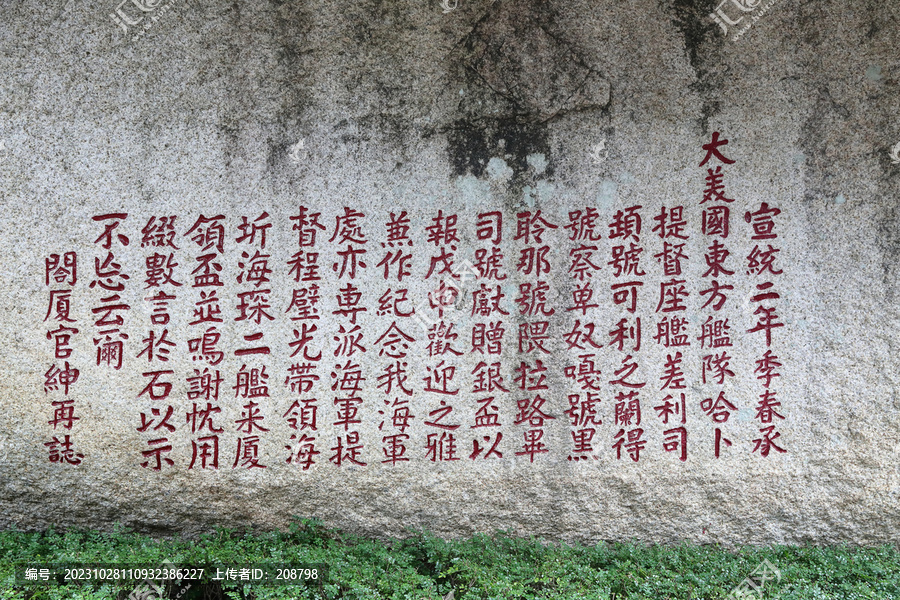 宣統二年季春承
大美國東方艦隊哈卜
提督座艦差利司
頓號可利之蘭得
號察单奴嘎號黑
聆那號隈拉路畢
司號獻贈銀盃以
報戊申歡迎之雅
蒹作紀念我海軍
處亦專派海軍提
督程璧光帶領海
圻海琛二艦来厦
領盃並鳴謝忱用
綴數言於石以示
不忘云爾
閤厦官紳再誌
编号：20231028110932386227 上传者ID：208798